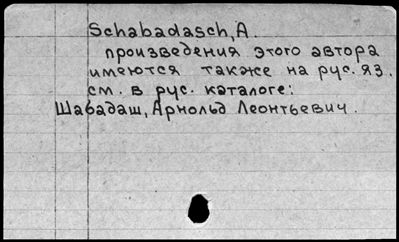 Schabadasch, A.
произведения этого автора
имеются также на рус. яз.
см. в рус. каталоге:
Шабадаш, Арнольд Леонтьевич.